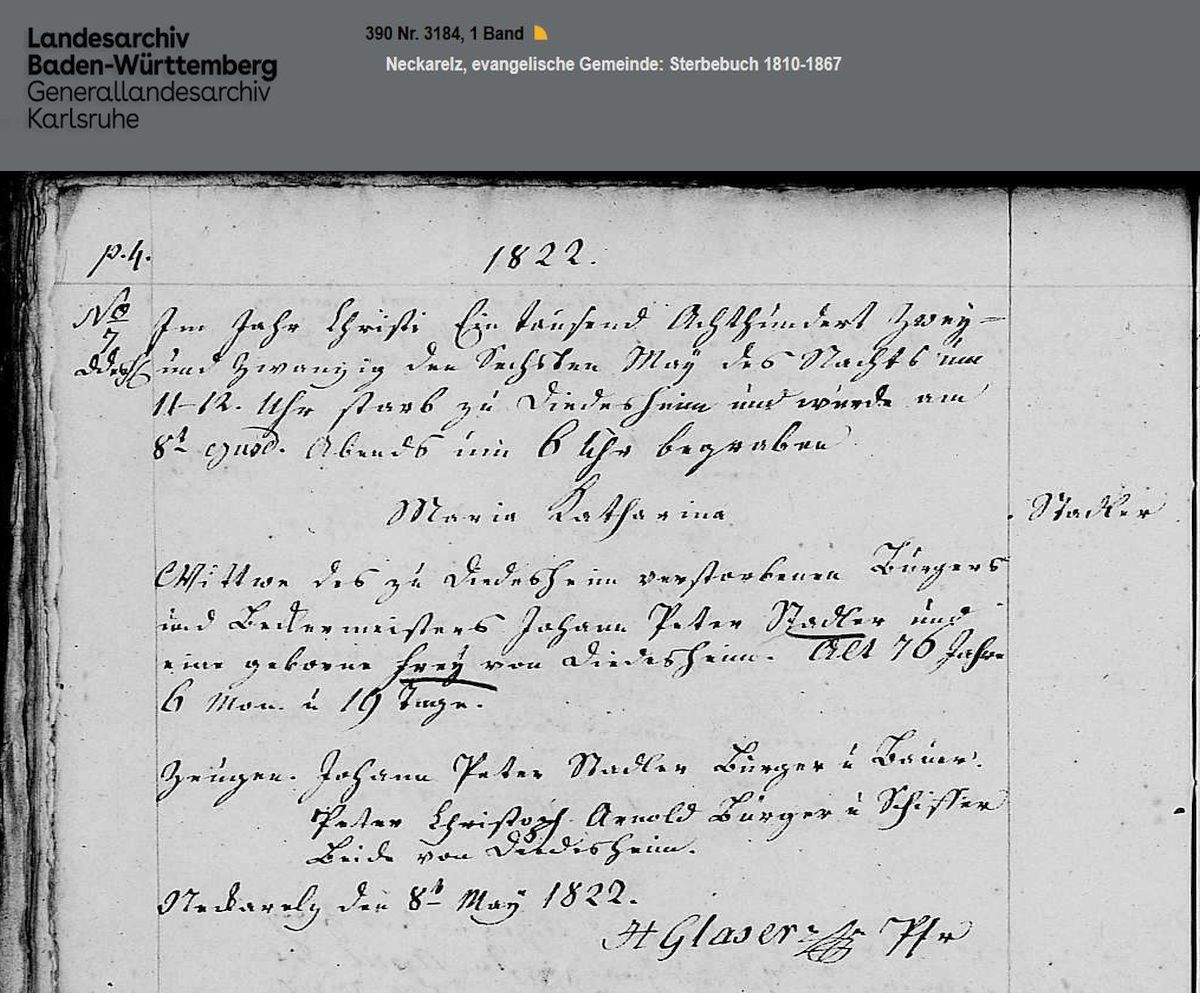 Landesarchiv
Baden-Württemberg
Generallandesarchiv
Karlsruhe
390 Nr. 3184, 1 Band
Neckarelz, evangelische Gemeinde: Sterbebuch 1810-1867
p. 4.
1822.
No
7
Im Jahr Christi Ein tausend Achthundert Zwey-
und Zwanzig den Sechsten May des Nachts um
11-12. Uhr starb zu Diedesheim und wurde am
8t ejusd. Abends um 6 Uhr begraben
Maria Katharina
Stadler
Wittwe des zu Diedesheim verstorbenen Bürgers
und Beckermeisters Johann Peter Stadler und
eine geborne Frey von Diedesheim. Alt 76 Jahre
6 Mon. u 19 Tage.
Zeugen. Johann Peter Stadler Bürger u Bauer.
Peter Christoph Arnold Bürger u Schiffer
Beide von Diedesheim.
Neckarelz den 8t May 1822.
H Glaser Pfr